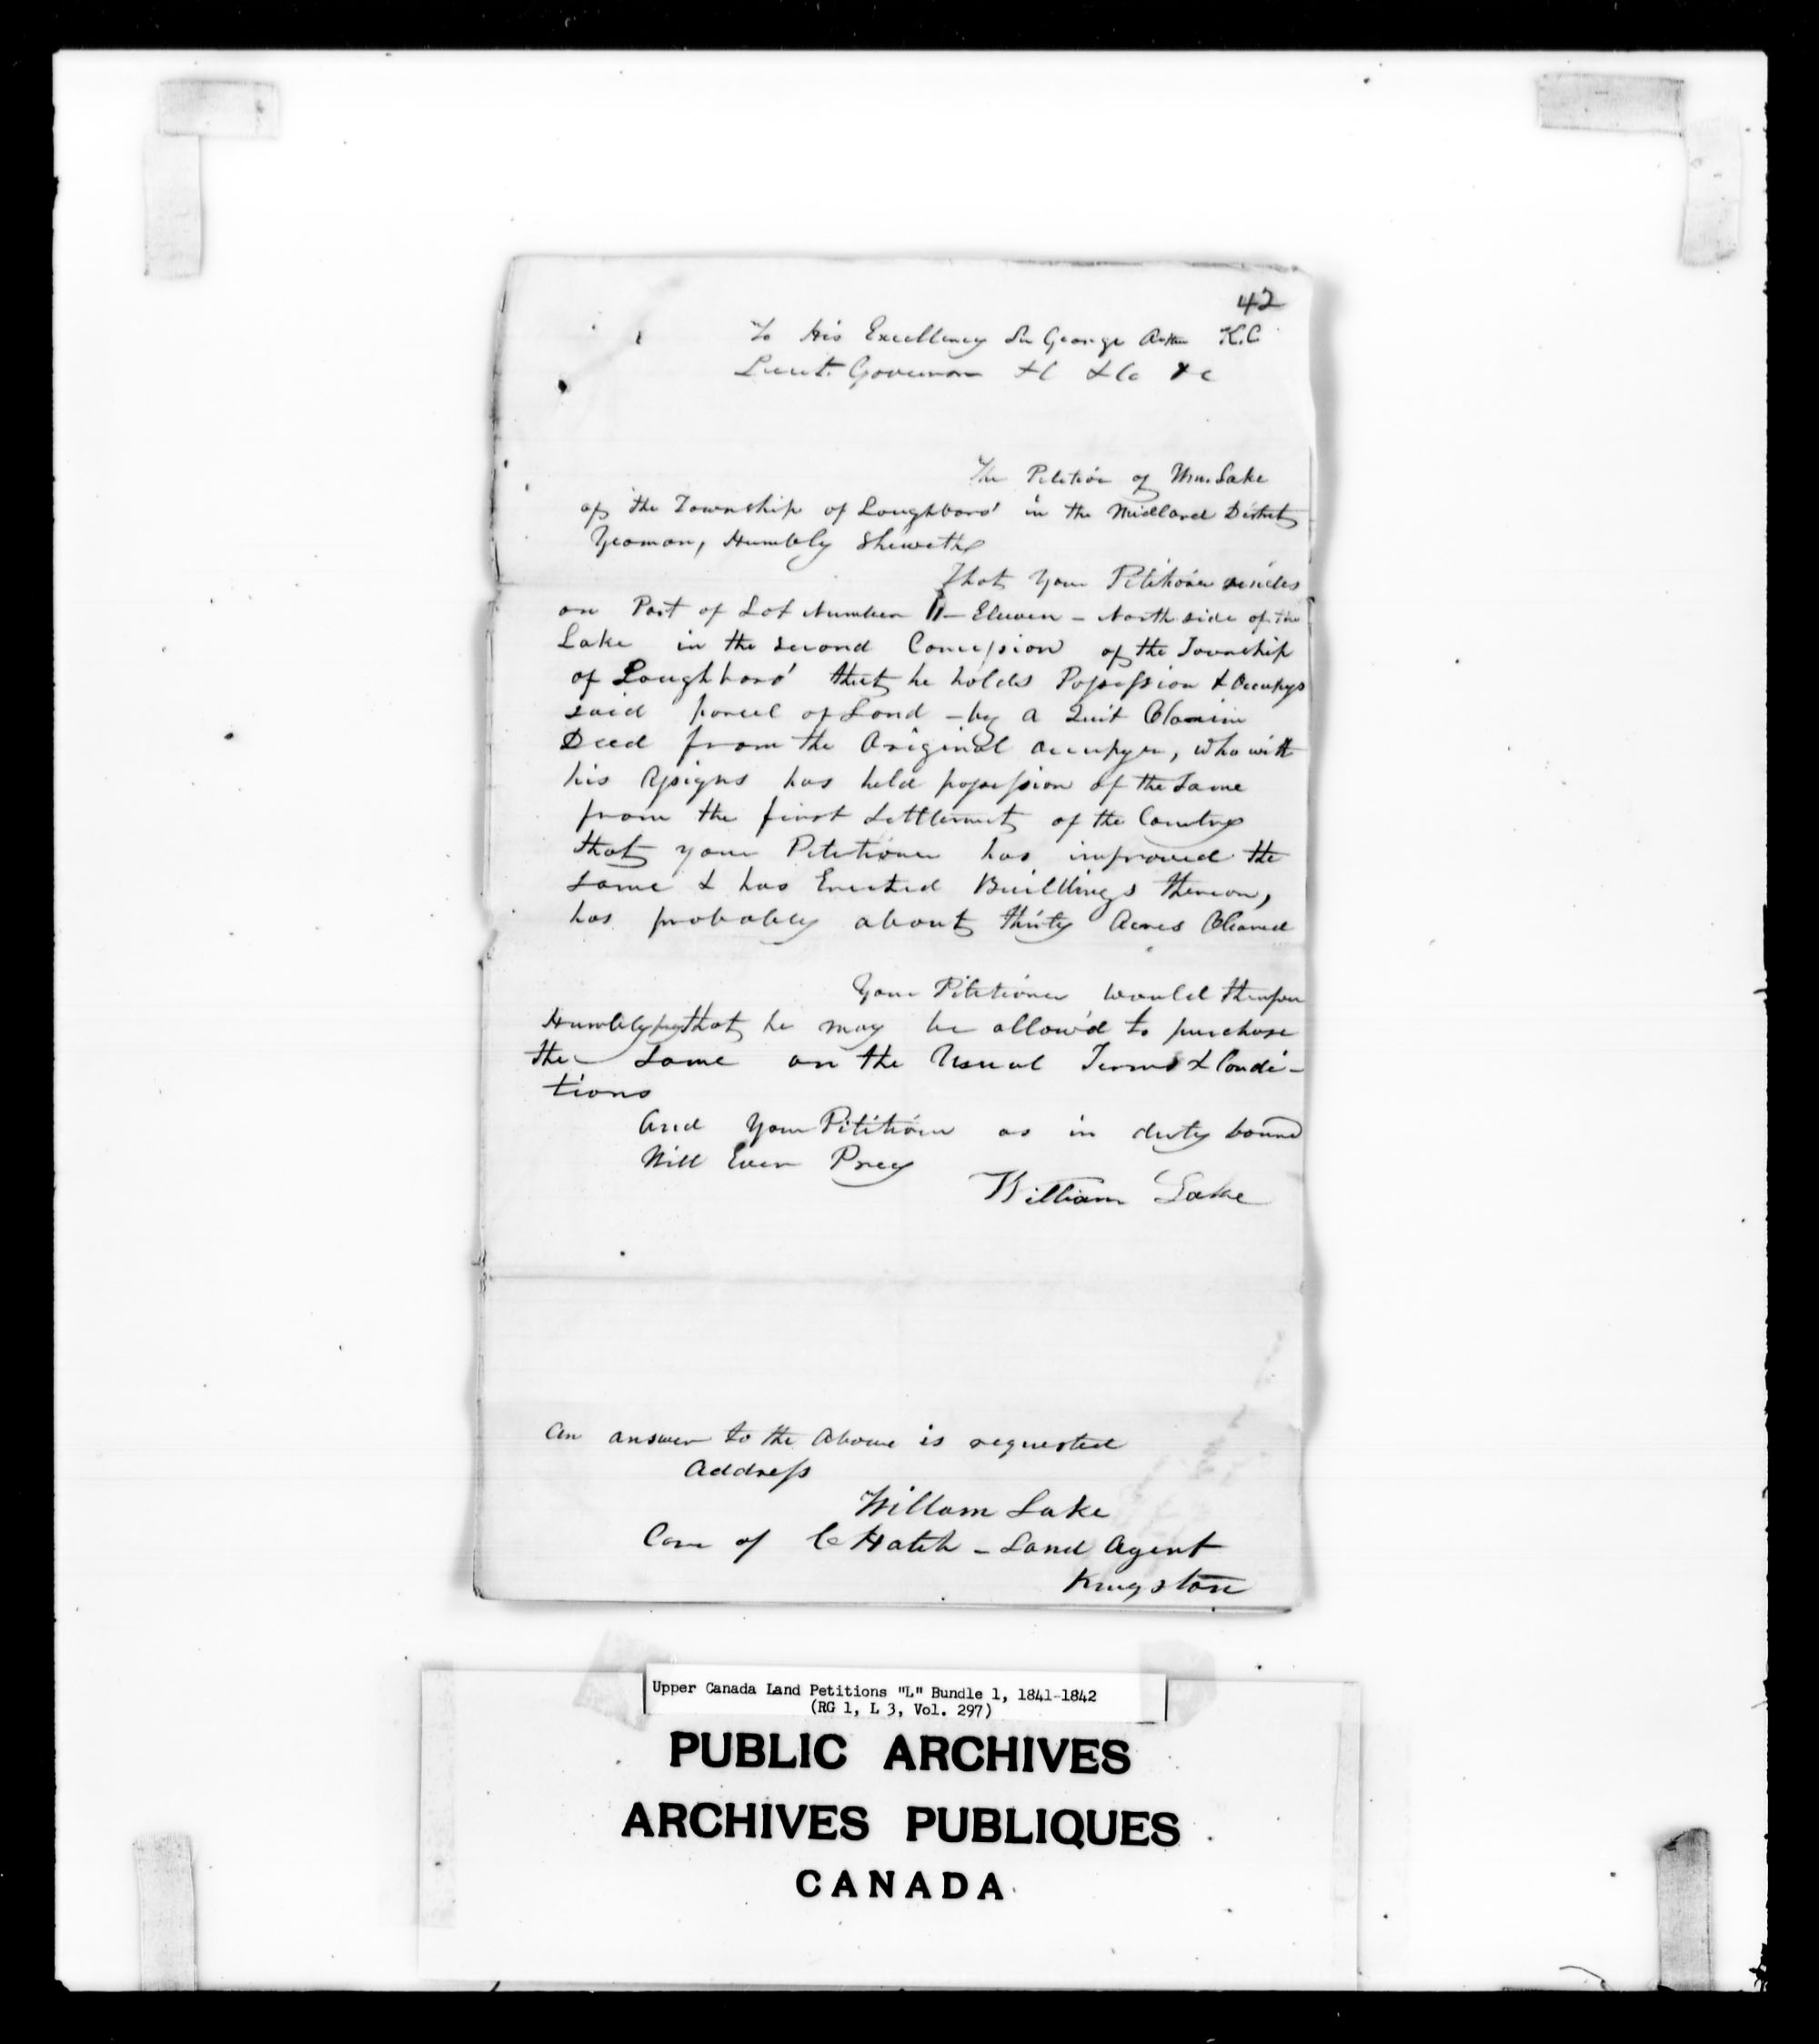 42
To His Excellency Sir George Arthur K.C
Lieut. Governor &C &Cc &c
The Petition of Wm. Lake
of the Township of Loughboro' in the Midland District
Yeoman, Humbly Sheweth
That Your Petitioner resides
on Part of Lot Number 11 - Eleven - North side of the
Lake in the second Concession of the Township
of Loughboro' that he holds Possession & Occupys
said parcel of Land - by a Quit Claim
Deed from the Original occupyer, who with
his Assigns has held possession of the Same
from the first Settlement of the Country
that your Petitioner has improved the
same & has Erected Buildings thereon,
has probably about thirty Acres Cleared
Your Petitioner would therefore
Humbly pray that he may be allow'd to purchase
the Same on the Usual Terms & Condi-
tions
And Your Petitioner as in duty bound
Will Ever Pray
William Lake
An answer to the Above is requested
Address
Willam Lake
Care of C Hatch - Land Agent
Kingston
Upper Canada Land Petitions "L" Bundle 1, 1841-1842
(RG 1, L 3, Vol. 297)
PUBLIC ARCHIVES
ARCHIVES PUBLIQUES
CANADA